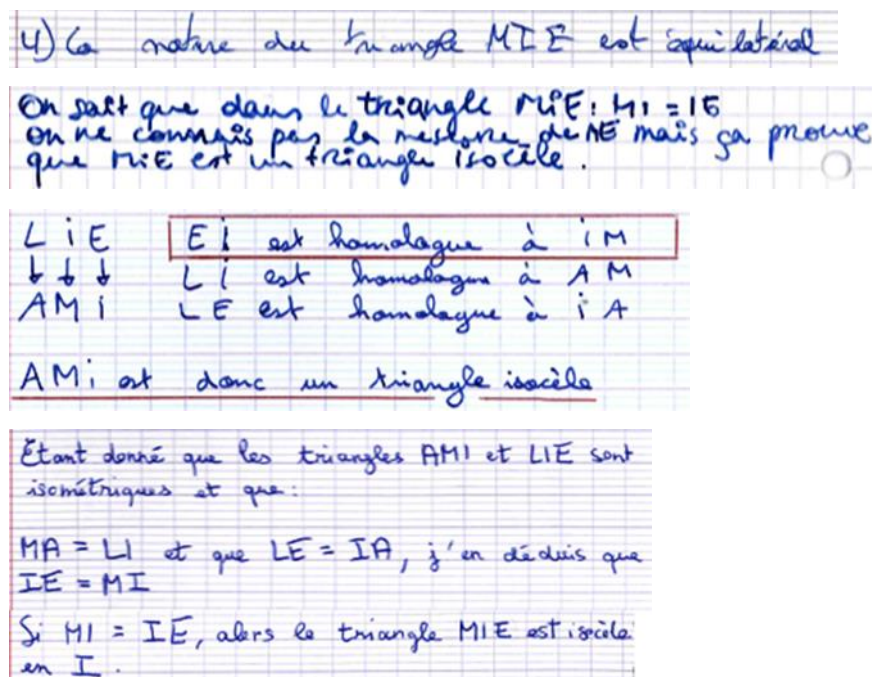 4) La nature du triangle MIE est équilatéral
On sait que dans le triangle MiE : MI = IE
on ne connais pas la mesure de ME mais ça prouve
que MiE est un triangle isocèle.
L i E
↓ ↓ ↓
A M i
Ei est homologue à iM
Li est homologue à AM
LE est homologue à iA
AMi est donc un triangle isocèle
Étant donné que les triangles AMI et LIE sont
isométriques et que :
MA = LI et que LE = IA, j'en déduis que
IE = MI
Si MI = IE, alors le triangle MIE est isocèle
en I.